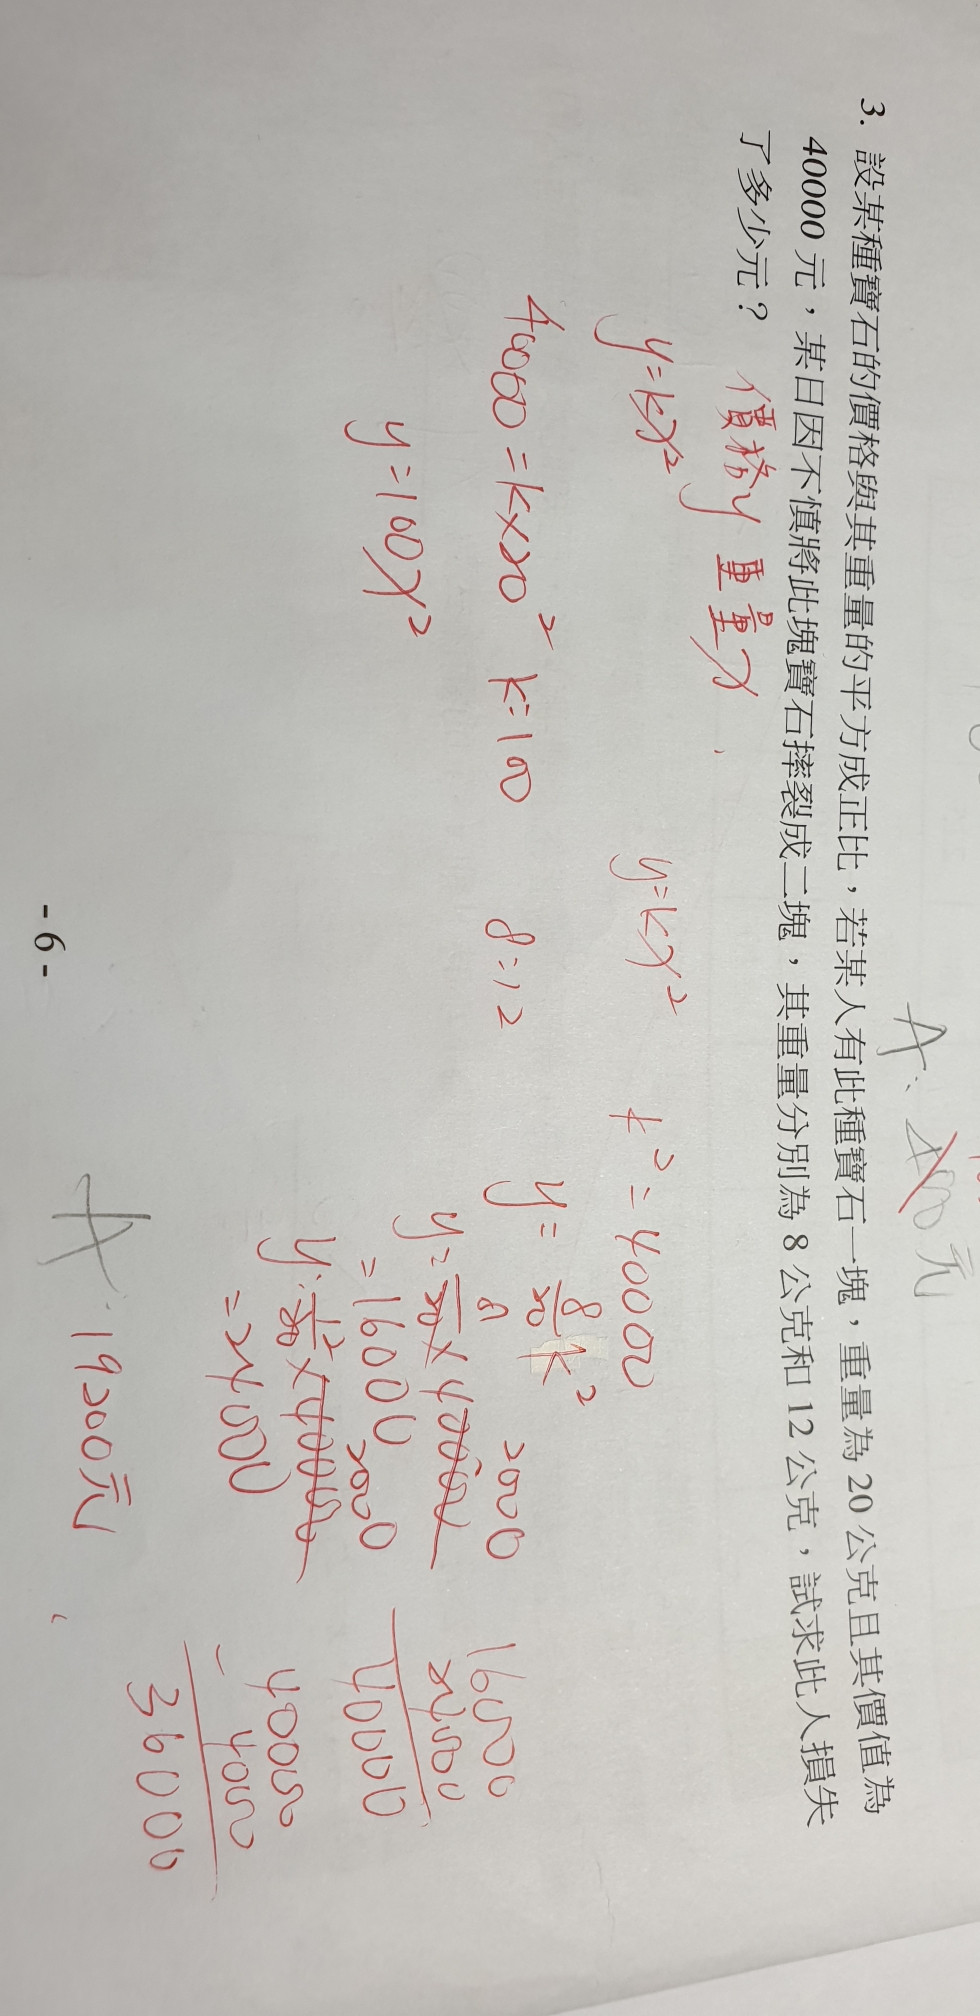 A: 400元
3. 設某種寶石的價格與其重量的平方成正比，若某人有此種寶石一塊，重量為 20 公克且其價值為
40000 元，某日因不慎將此塊寶石摔裂成二塊，其重量分別為 8 公克和 12 公克，試求此人損失
了多少元？
價格y 重量x
y=kx²
40000=k×20² k=100
y=100x²
y=kx²
8:12
k²=40000
y=8/20 k²
y=8/20×40000 2000
=16000
y=12/20×40000 2000
=24000
16000
24000
40000
40000
-4000
36000
A: 19200元
- 6 -